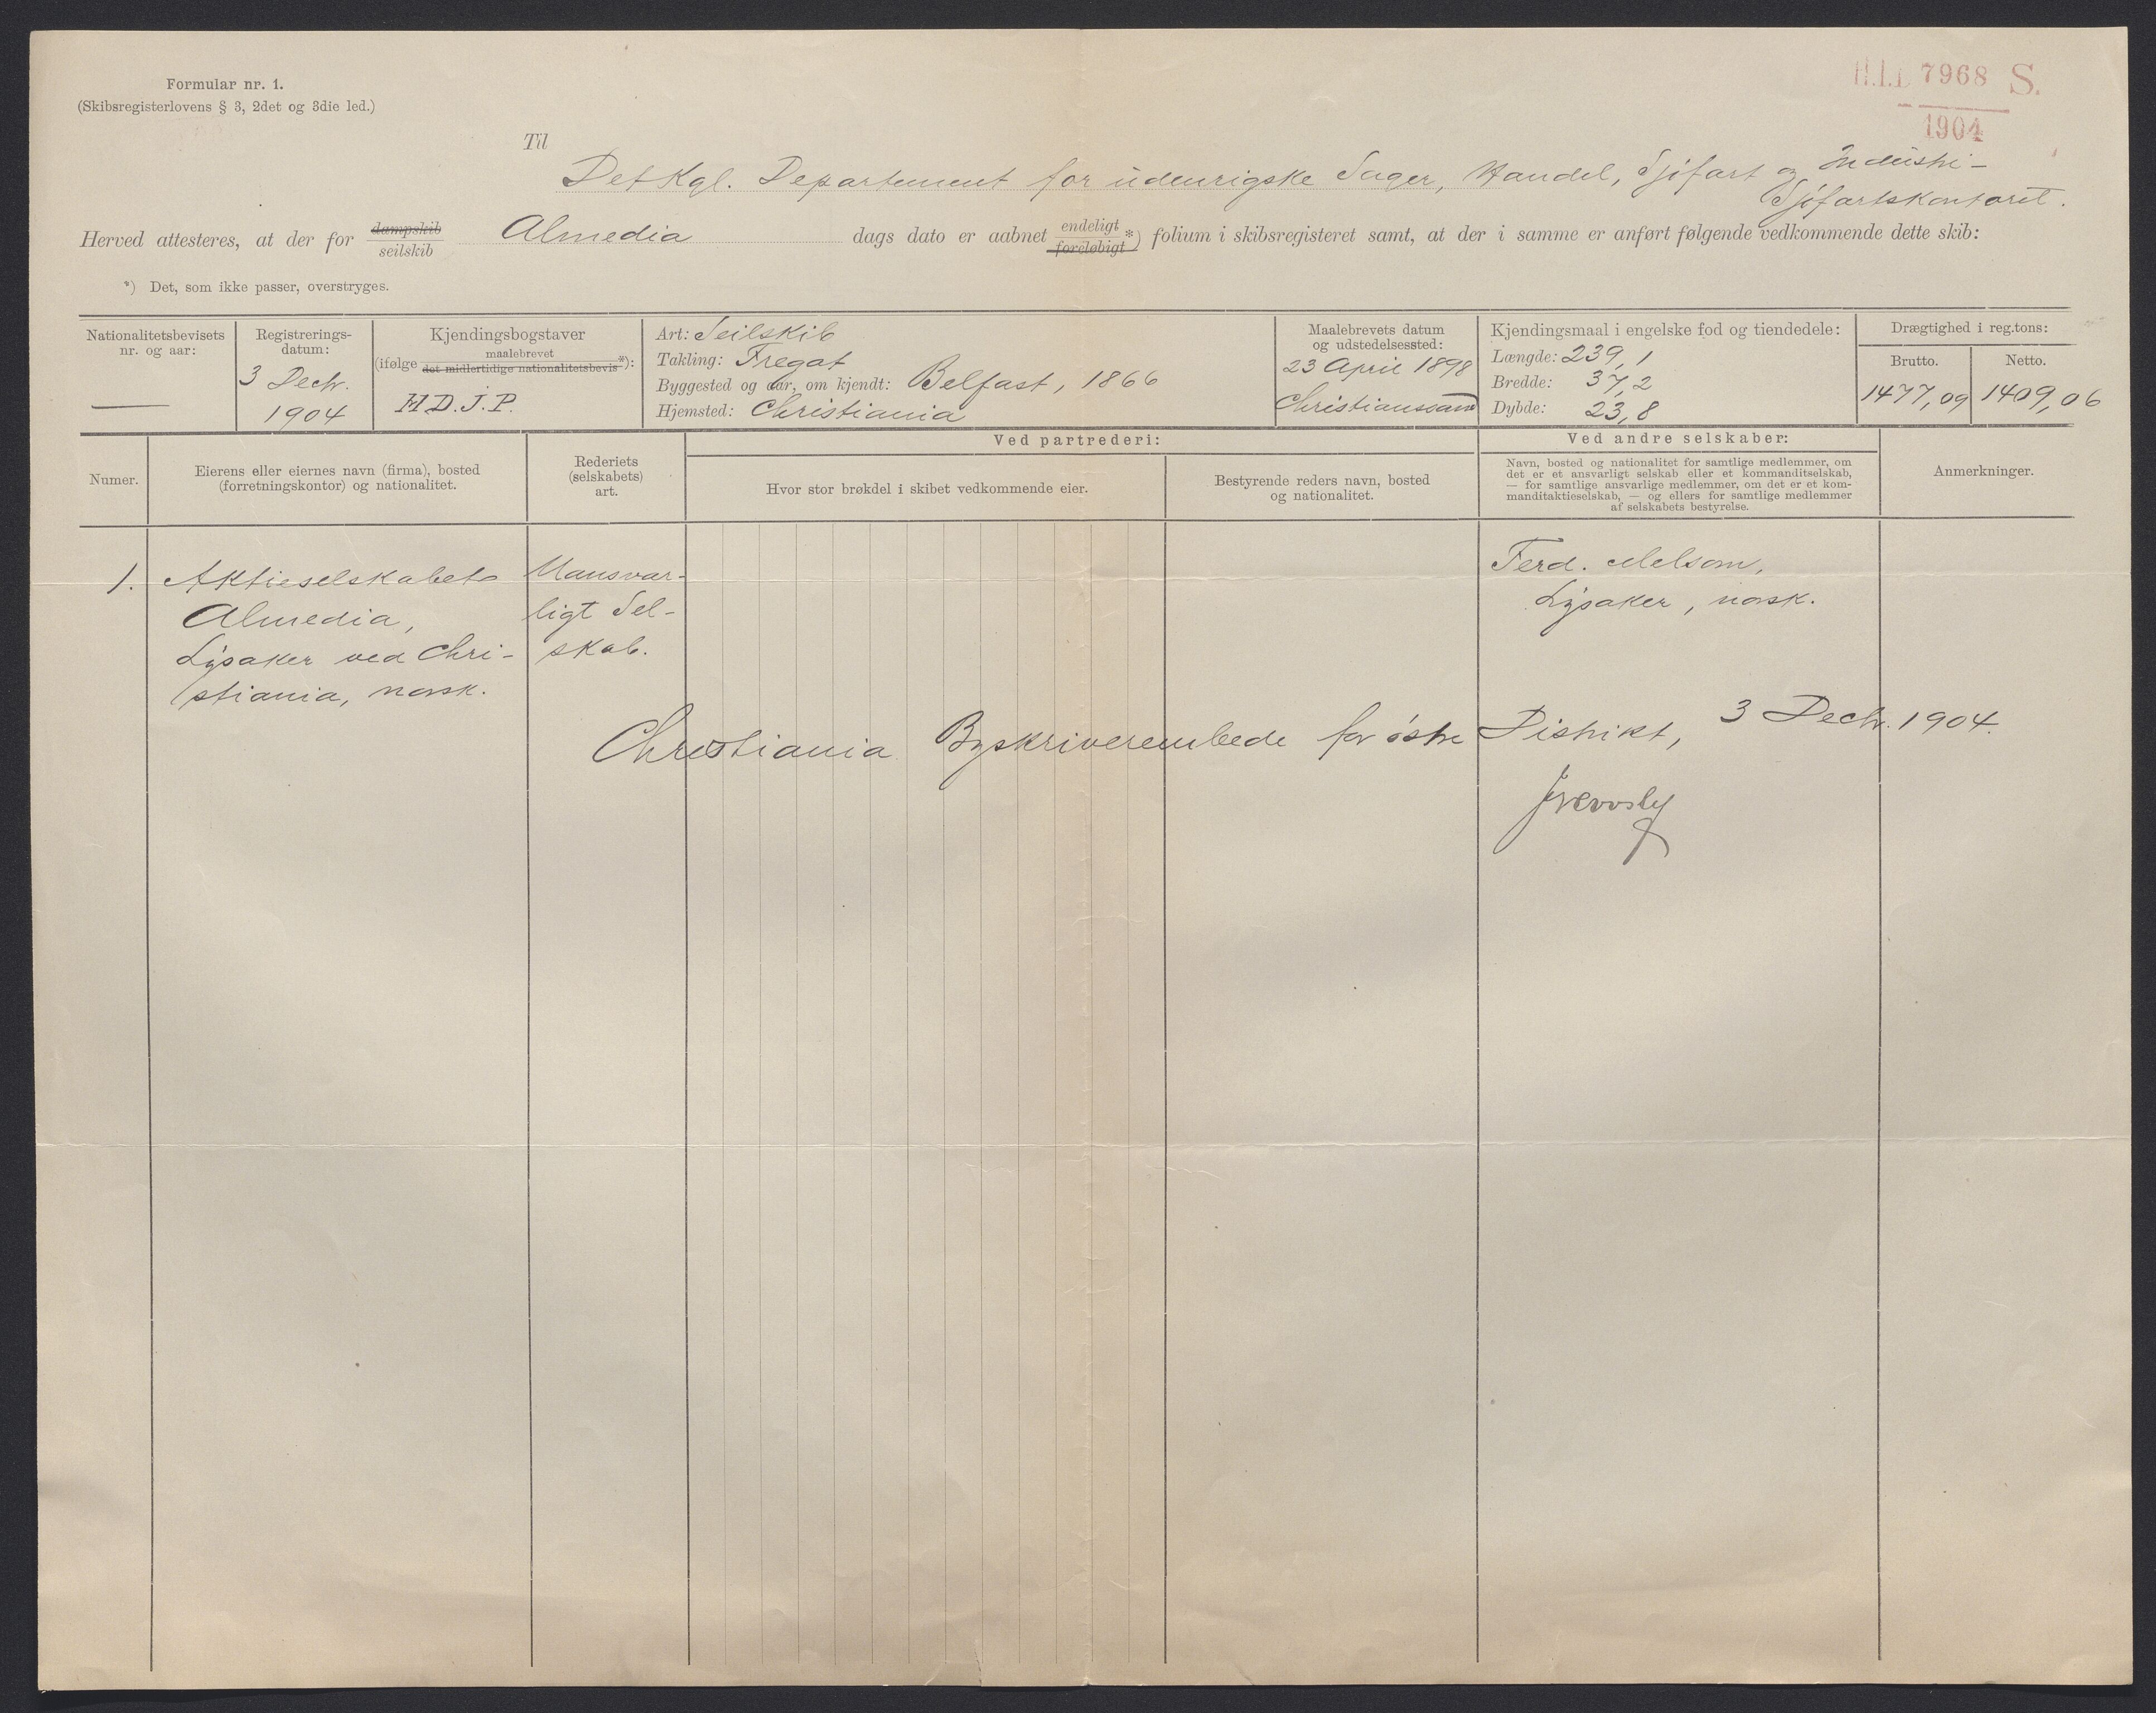 Formular nr. 1.
(Skibsregisterlovens § 3, 2det og 3die led.)
7968 S.
1904
Til
Det Kgl. Departement for udenrigske Sager, Handel, Sjöfart og Industri -
Sjöfartskontoret.
Herved attesteres, at der for dampskib / seilskib Almedia dags dato er aabnet endeligt / foreløbigt *) folium i skibsregisteret samt, at der i samme er anført følgende vedkommende dette skib:
*) Det, som ikke passer, overstryges.
Nationalitetsbevisets
nr. og aar:
—
Registrerings-
datum:
3 Decbr.
1904
Kjendingsbogstaver
(ifølge maalebrevet / det midlertidige nationalitetsbevis *):
H D. J. P.
Art: Seilskib
Takling: Fregat
Byggested og aar, om kjendt: Belfast, 1866
Hjemsted: Christiania
Maalebrevets datum
og udstedelsessted:
23 April 1898
Christianssand
Kjendingsmaal i engelske fod og tiendedele:
Længde: 239,1
Bredde: 37,2
Dybde: 23,8
Drægtighed i reg.tons:
Brutto. Netto.
1477,09 1409,06
Numer.
Eierens eller eiernes navn (firma), bosted
(forretningskontor) og nationalitet.
Rederiets
(selskabets)
art.
Ved partrederi:
Hvor stor brøkdel i skibet vedkommende eier.
Bestyrende reders navn, bosted
og nationalitet.
Ved andre selskaber:
Navn, bosted og nationalitet for samtlige medlemmer, om
det er et ansvarligt selskab eller et kommanditselskab,
— for samtlige ansvarlige medlemmer, om det er et kom-
manditaktieselskab, — og ellers for samtlige medlemmer
af selskabets bestyrelse.
Anmerkninger.
1. Aktieselskabet
Almedia,
Lysaker ved Chri-
stiania, norsk.
Uansvar-
ligt Sel-
skab.
Ferd. Melsom,
Lysaker, norsk.
Christiania Byskriverembede for östre Distrikt, 3 Decbr. 1904.